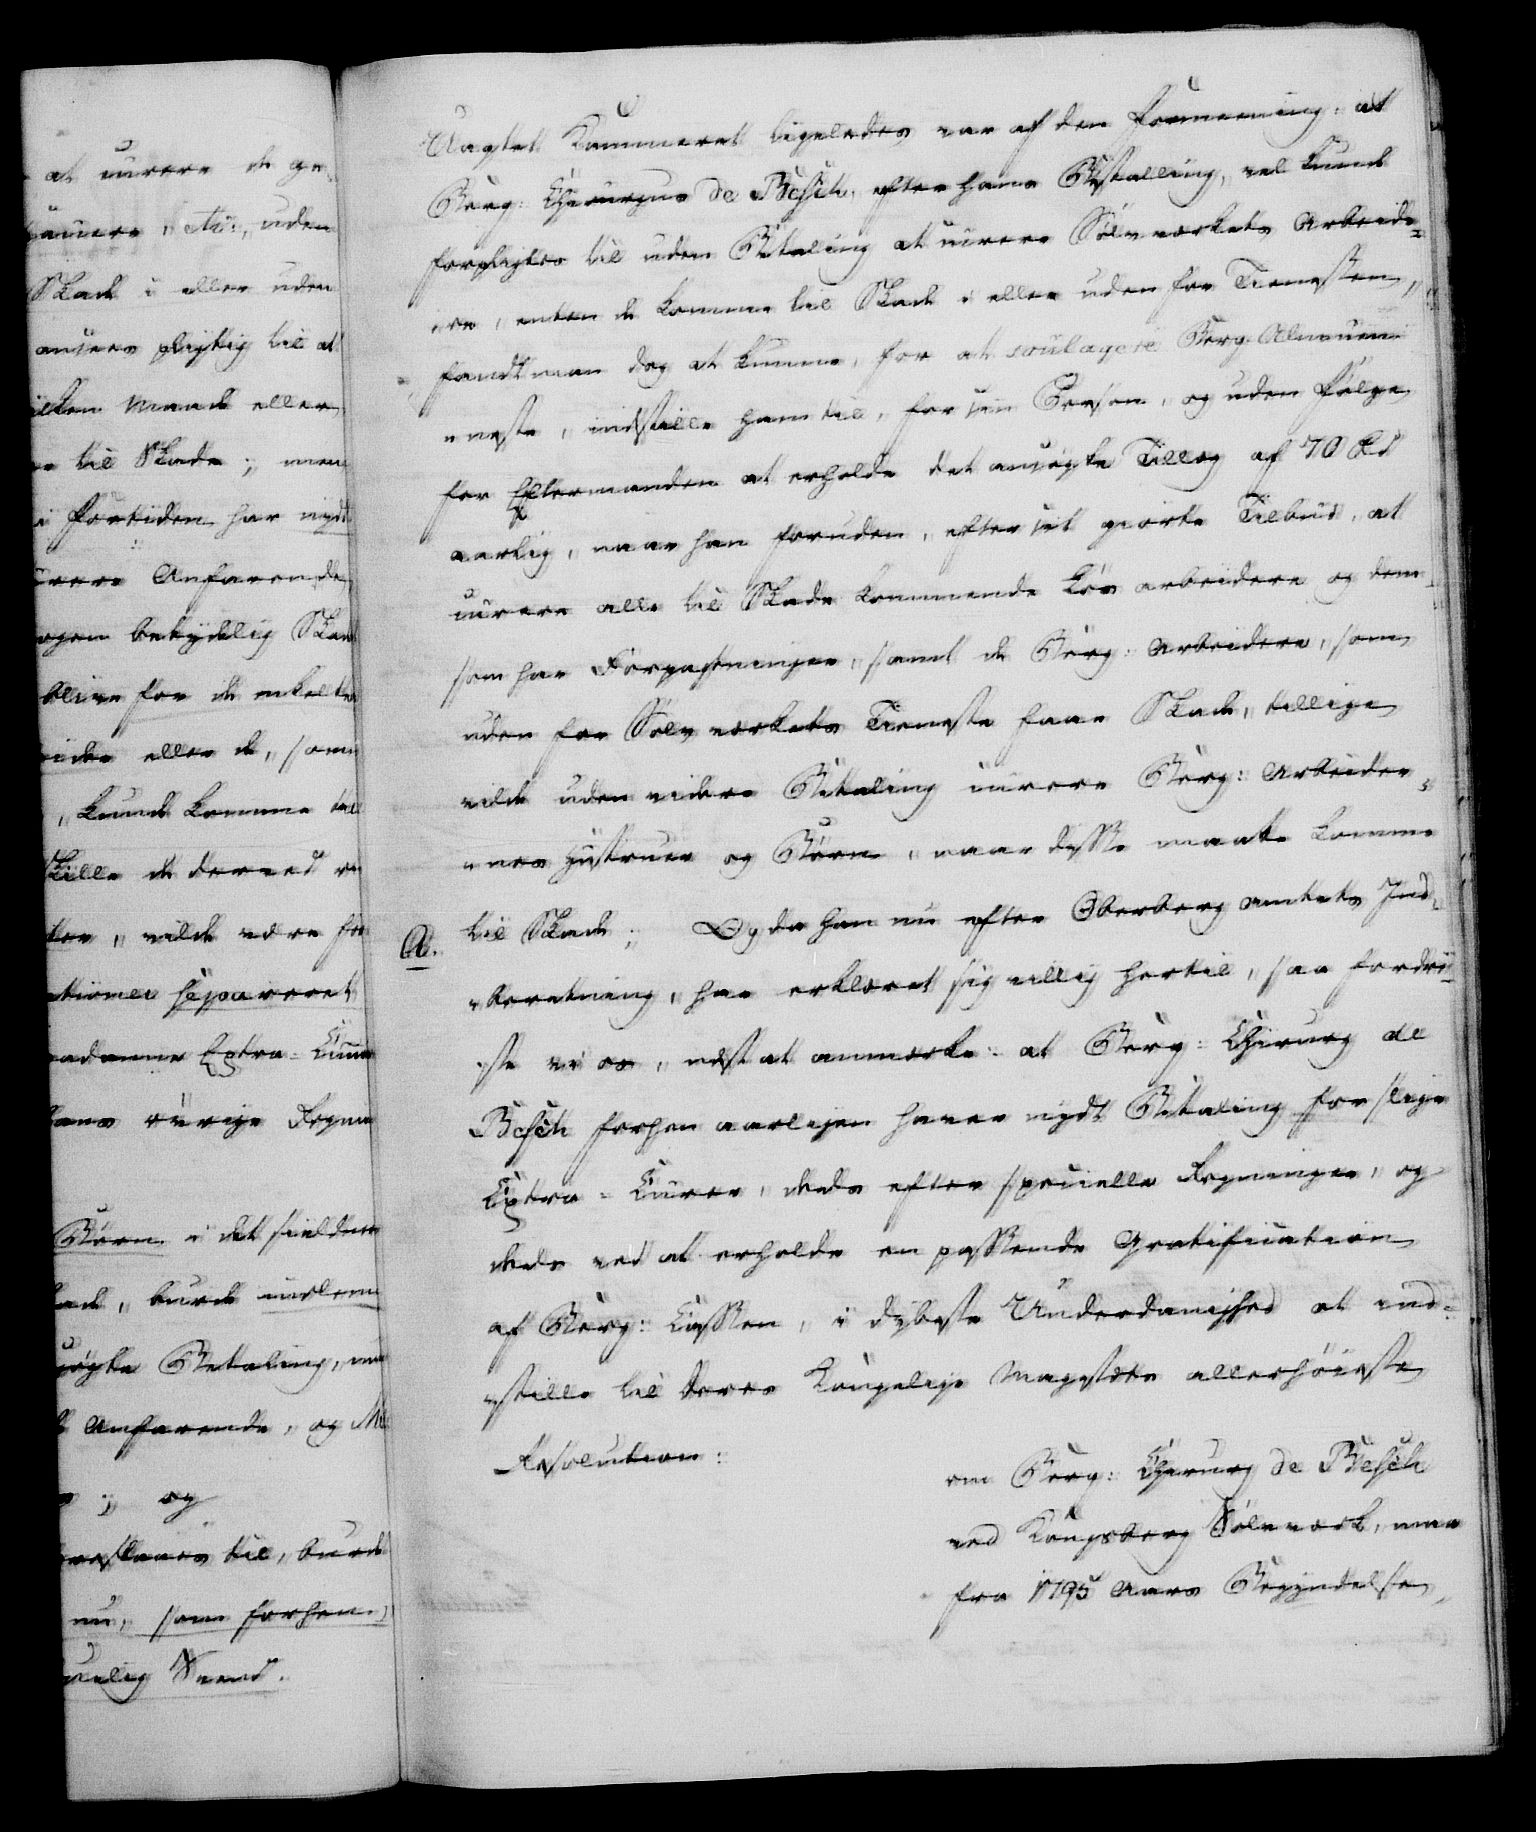 at curere de ge-
curere etc:, uden
Skade i eller uden
ansees pligtig til at
hvilken Maade eller
til Skade; men
i Fortiden har nydt
curere Anfarende
nogen betydelig Skade
blive for de enkelte
eller de, som
, kunde komme til
Skille de derved
, vilde være for
separeret
saadanne Extra-Cuurer
hans øvrige Regning
Børn i det sieldne
Skade, burde indlem
søgte Betaling, men
Anfarende, og
; og
foreslaaes til, burde
nu, som forhen
Svend.
Uagtet Kammeret ligeledes var af den Formeening: at
Berg: Chirurgus de Besche, efter hans Bestalling, vel kunde
forpligtes til uden Betaling at curere Sølvværkets Arbeide-
ere, enten de komme til Skade i eller uden for Tienesten,
fandt man dog at kunne, for at soulagere Berg-Almuen
næste, indstille ham til, for sin Person, og uden Følge
for Eftermanden at erholde det ansøgte Tillæg af 70 Rd
aarlig, naar han foruden, efter sit giorte Tilbud, at
curere alle til Skade kommende Løsarbeidere og dem
som har Forpagtninger, samt de Berg-Arbeidere, som
uden for Sølvværkets Tieneste faae Skade, tillige
vilde uden videre Betaling curere Berg-Arbeider-
nes Hustruer og Børn, naar disse maatte komme
A. til Skade; Og da han nu efter Oberbergamtets Ind-
beretning, har erklæret sig villig hertil, saa fordri-
ste vi os, næst at anmærke: at Berg-Chirurg de
Besche forhen aarligen haver nydt Betaling for slige
Extra-Curer, deels efter specielle Regninger, og
deels ved at erholde en passende Gratification
af Berg-Cassen, i dybeste Underdanighed at ind-
stille til Deres Kongelige Majestæts allerhøieste
Resolution:
om Berg-Chirurg de Besche
ved Kongsberg Sølvværk, maa
fra 1795 Aars Begyndelse,